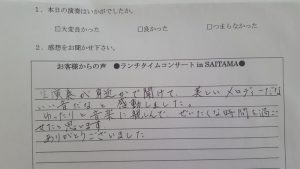 1．本日の演奏はいかがでしたか。
☑大変良かった　□良かった　□つまらなかった
2．感想をお聞かせ下さい。
お客様からの声　●ランチタイムコンサート in SAITAMA●
生演奏が身近かで聞けて、美しいメロディーだな
いい音だなと感動しました。
ゆったりと音楽に親しんで ぜいたくな時間を過ご
せたと思います
ありがとうございました